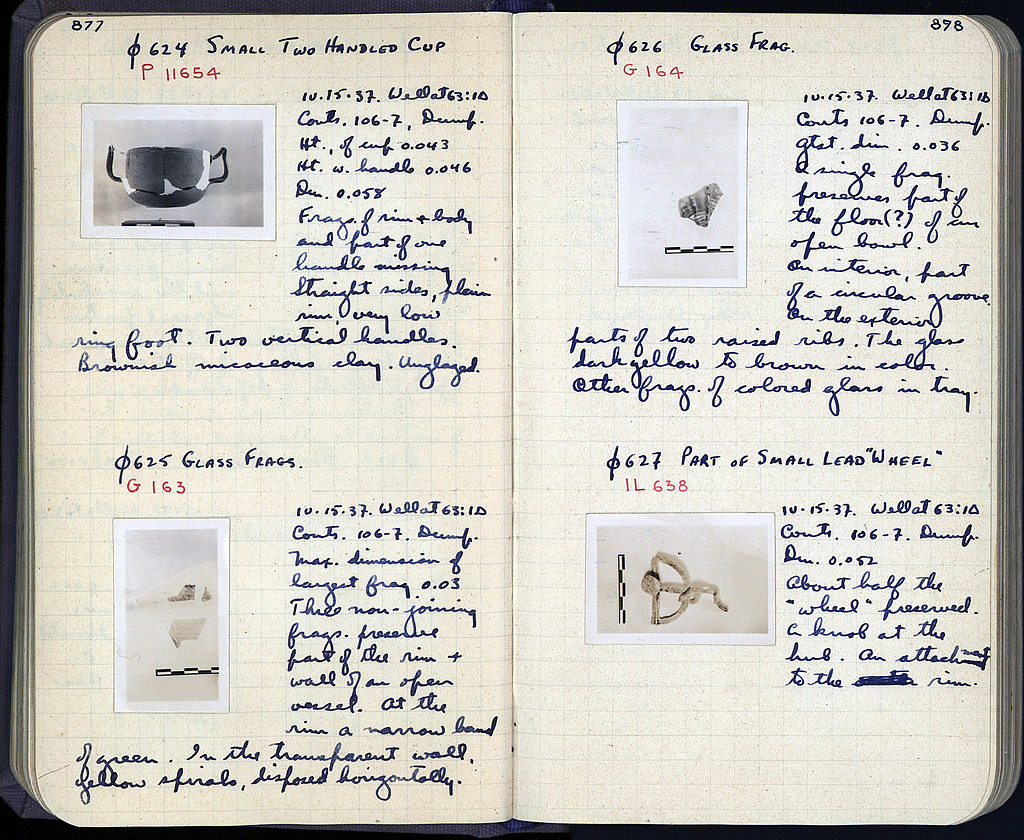 877
φ624 SMALL TWO HANDLED CUP
P 11654
10.15.37. Well at 63:ΙΔ
Conts. 106-7, Dump.
Ht., of cup 0.043
Ht. w. handle 0.046
Dm. 0.058
Frags. of rim + body
and part of one
handle missing
Straight sides, plain
rim, very low
ring foot. Two vertical handles.
Brownish micaceous clay. Unglazed.
φ625 GLASS FRAGS.
G 163
10.15.37. Well at 63:ΙΔ
Conts. 106-7. Dump.
Max. dimension of
largest frag 0.03
Three non-joining
frags. preserve
part of the rim +
wall of an open
vessel. At the
rim a narrow band
of green. In the transparent wall,
yellow spirals, disposed horizontally.
898
φ626 GLASS FRAG.
G 164
10.15.37. Well at 63:ΙΔ
Conts 106-7. Dump.
gtst. dim. 0.036
A single frag.
preserves part of
the floor(?) of an
open bowl.
On interior, part
of a circular groove.
On the exterior
parts of two raised ribs. The glass
dark yellow to brown in color.
Other frags. of colored glass in tray.
φ627 PART OF SMALL LEAD "WHEEL"
IL 638
10.15.37. Well at 63:ΙΔ
Conts. 106-7. Dump.
Dm. 0.052
About half the
"wheel" preserved.
A knob at the
hub. An attachment
to the rim.